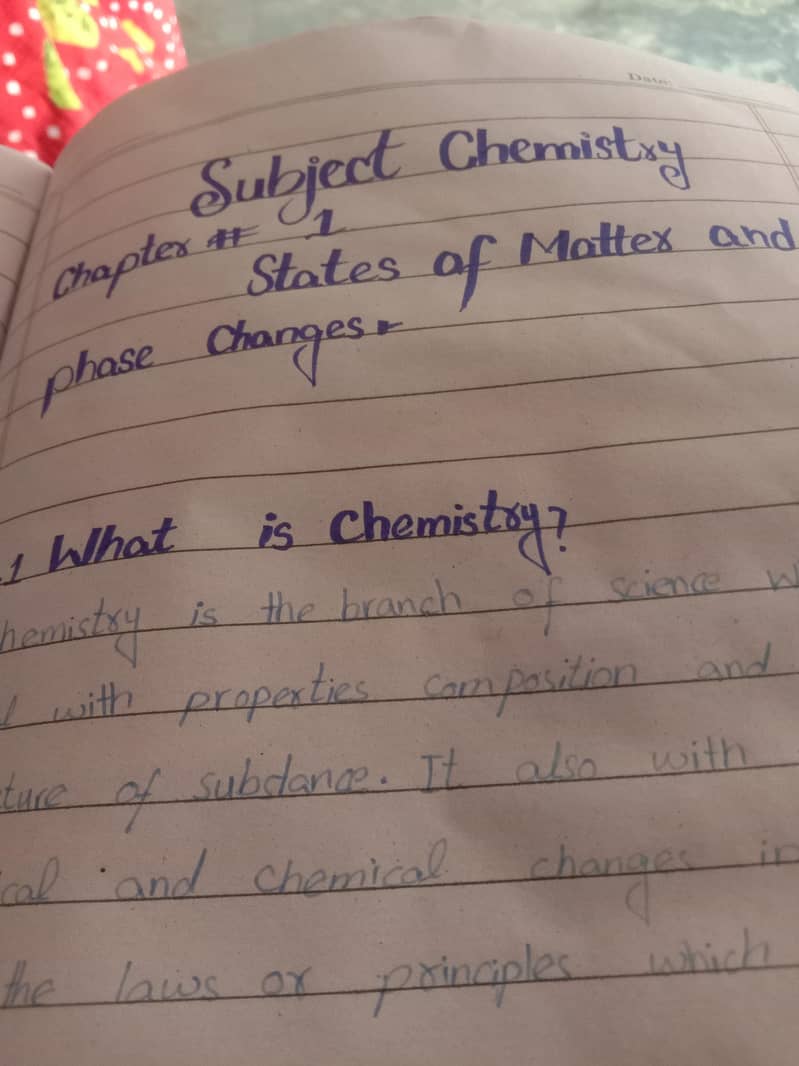 Date:
Subject Chemistry
Chapter # 1
States of Matter and
phase Changes
.1 What is Chemistry?
hemistry is the branch of science w
l with properties composition and
ture of subdance. It also with
cal and chemical changes in
the laws or principles which